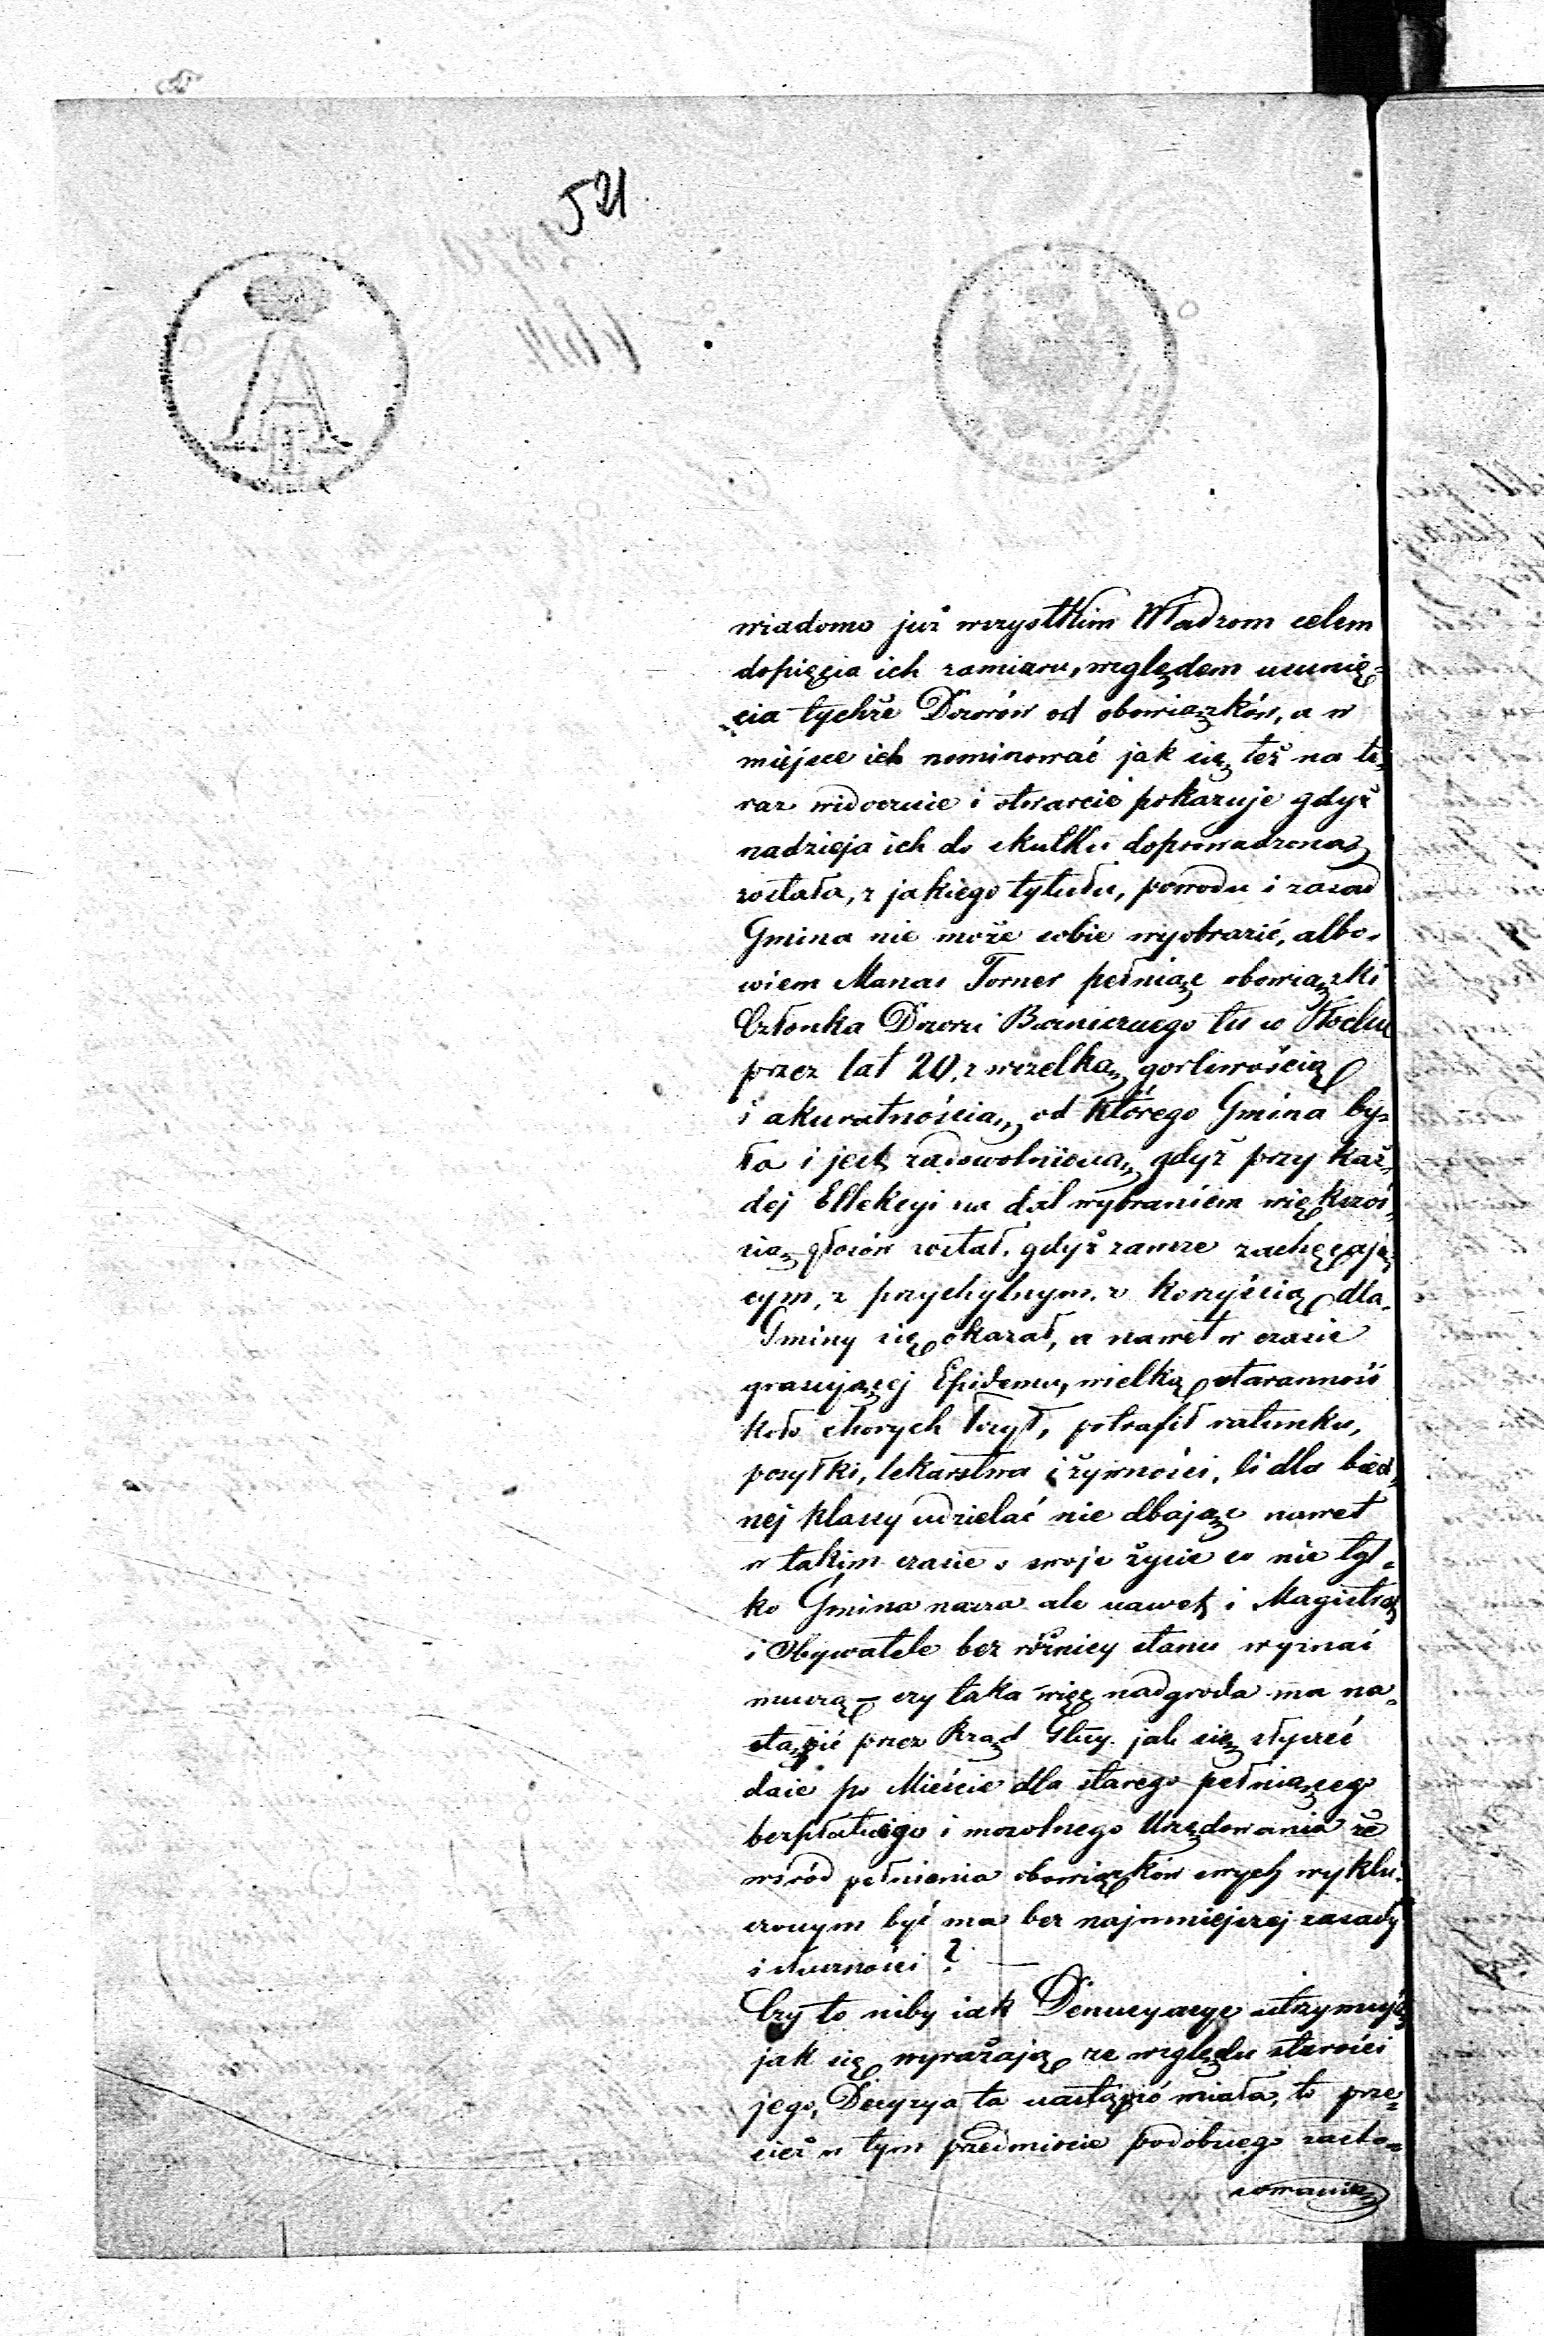 521.
wiadomo już wszystkim Władzom celem
dopięcia ich zamiaru, względem usunię-
cia tychże Dozorów od obowiązków, a w
miejsce ich nominować jak się też na te-
raz widocznie i otwarcie pokazuje gdyż
nadzieja ich do skutku doprowadzoną
została, z jakiego tytułu, powodu i zasad
Gmina nie może sobie wyobrazić, albo-
wiem Manas Torner pełniąc obowiązki
Członka Dozoru Bożniczego tu w Płocku
przez lat 20. z wszelką gorliwością
i akuratnością, od którego Gmina by-
ła i jest zadowolnioną, gdyż przy każ-
dej Ellekcyi na dal wybraniem większoś-
cią głosów został, gdyż zawsze zachęcają-
cym, z przychylnym, z korzyścią dla
Gminy się okazał, a nawet w czasie
grasującej Epidemii, wielką staranność
koło chorych łożył, potrafił ratunku,
posyłki, lekarstwa i żywności, li dla bied-
nej klassy udzielać nie dbając nawet
w takim czasie o swoje życie co nie tyl-
ko Gmina nasza ale nawet i Magistrat
i Obywatele bez różnicy stanu wyznać
muszą – czy taka więc nadgroda ma na-
stąpić przez Rząd Głny. jak się słyszeć
daie po Mieście dla starego pełniącego
bezpłatnego i mozolnego Urzędowania że
wśród pełnienia obowiązków swych wyklu-
czonym być ma bez najmniejszej zasady
i słuszności? —
Czy to niby iak Denucyacye utrzymują
jak się wyrażają ze względu starości
jego, Decyzya ta nastąpić miała, to prze-
cież w tym przedmiocie podobnego zasto-
sowania